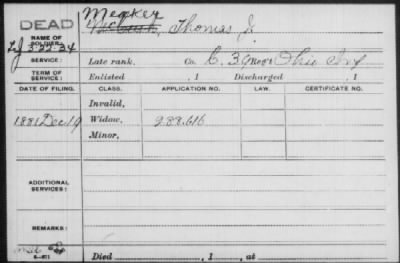 DEAD
Meckey
NAME OF SOLDIER: Thomas J.
3-22-34
SERVICE: Late rank, Co. C. 39 Ohio Inf
TERM OF SERVICE: Enlisted , 1 Discharged , 1
DATE OF FILING. CLASS. APPLICATION NO. LAW. CERTIFICATE NO.
Invalid,
1881 Dec 19 Widow, 288,616
Minor,
ADDITIONAL SERVICES:
REMARKS:
Died , 1 , at